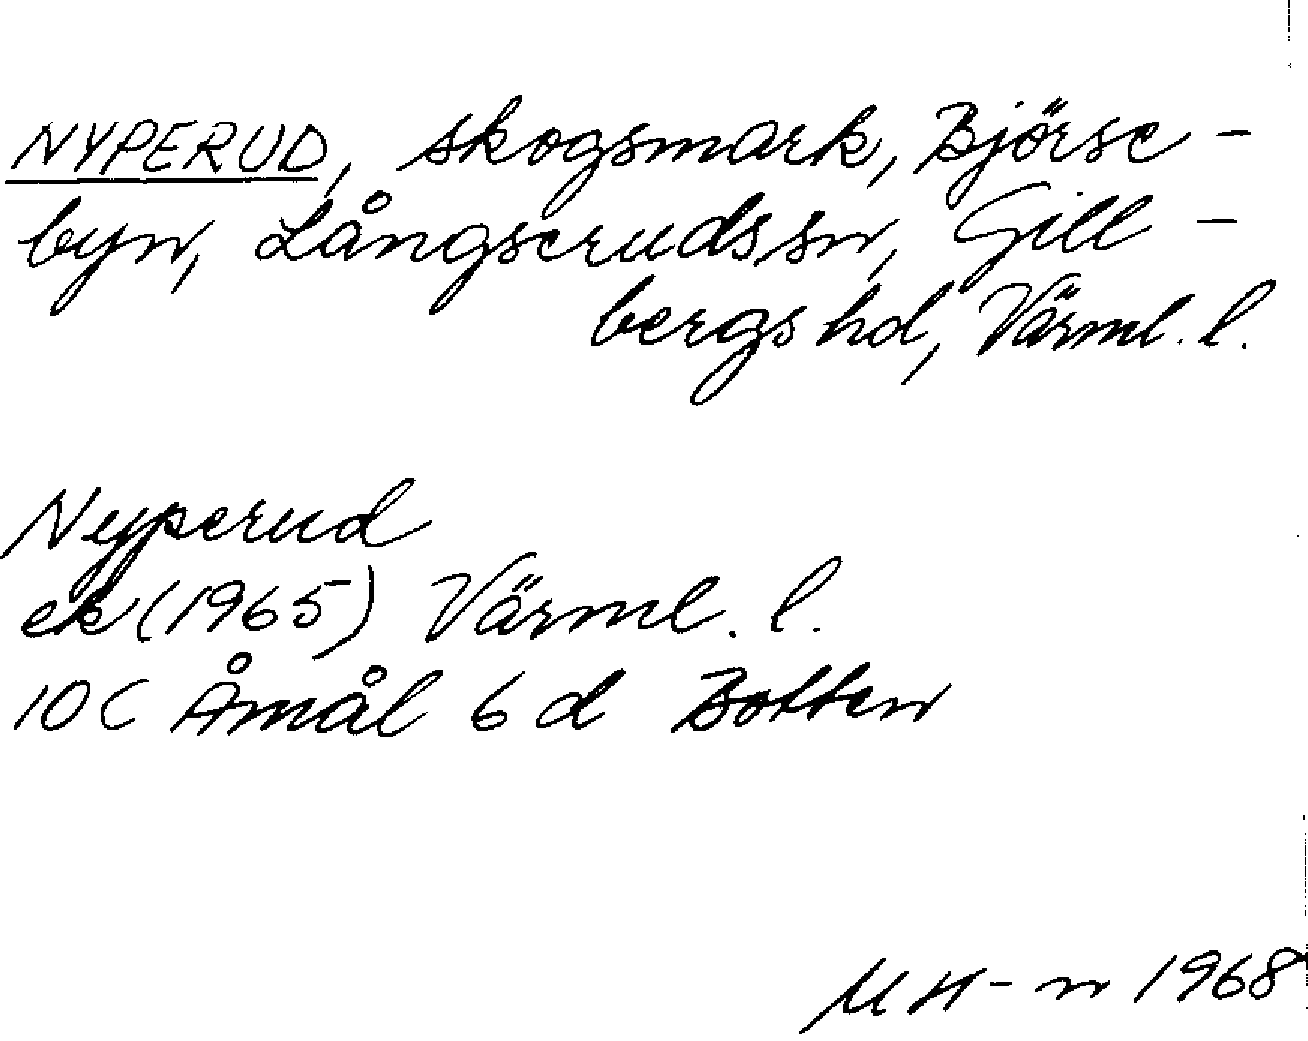 NYPERUD, skogsmark, Björse-
byn, Långserudssn, Gill-
bergs hd, Värml. l.
Nyperud
ek (1965) Värml. l.
10C Åmål 6d Botten
MH-n 1968